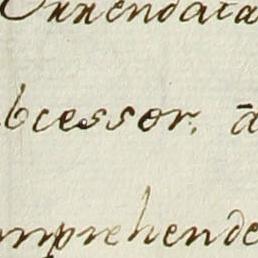 Orrendata
bcessor. ā
mprehende